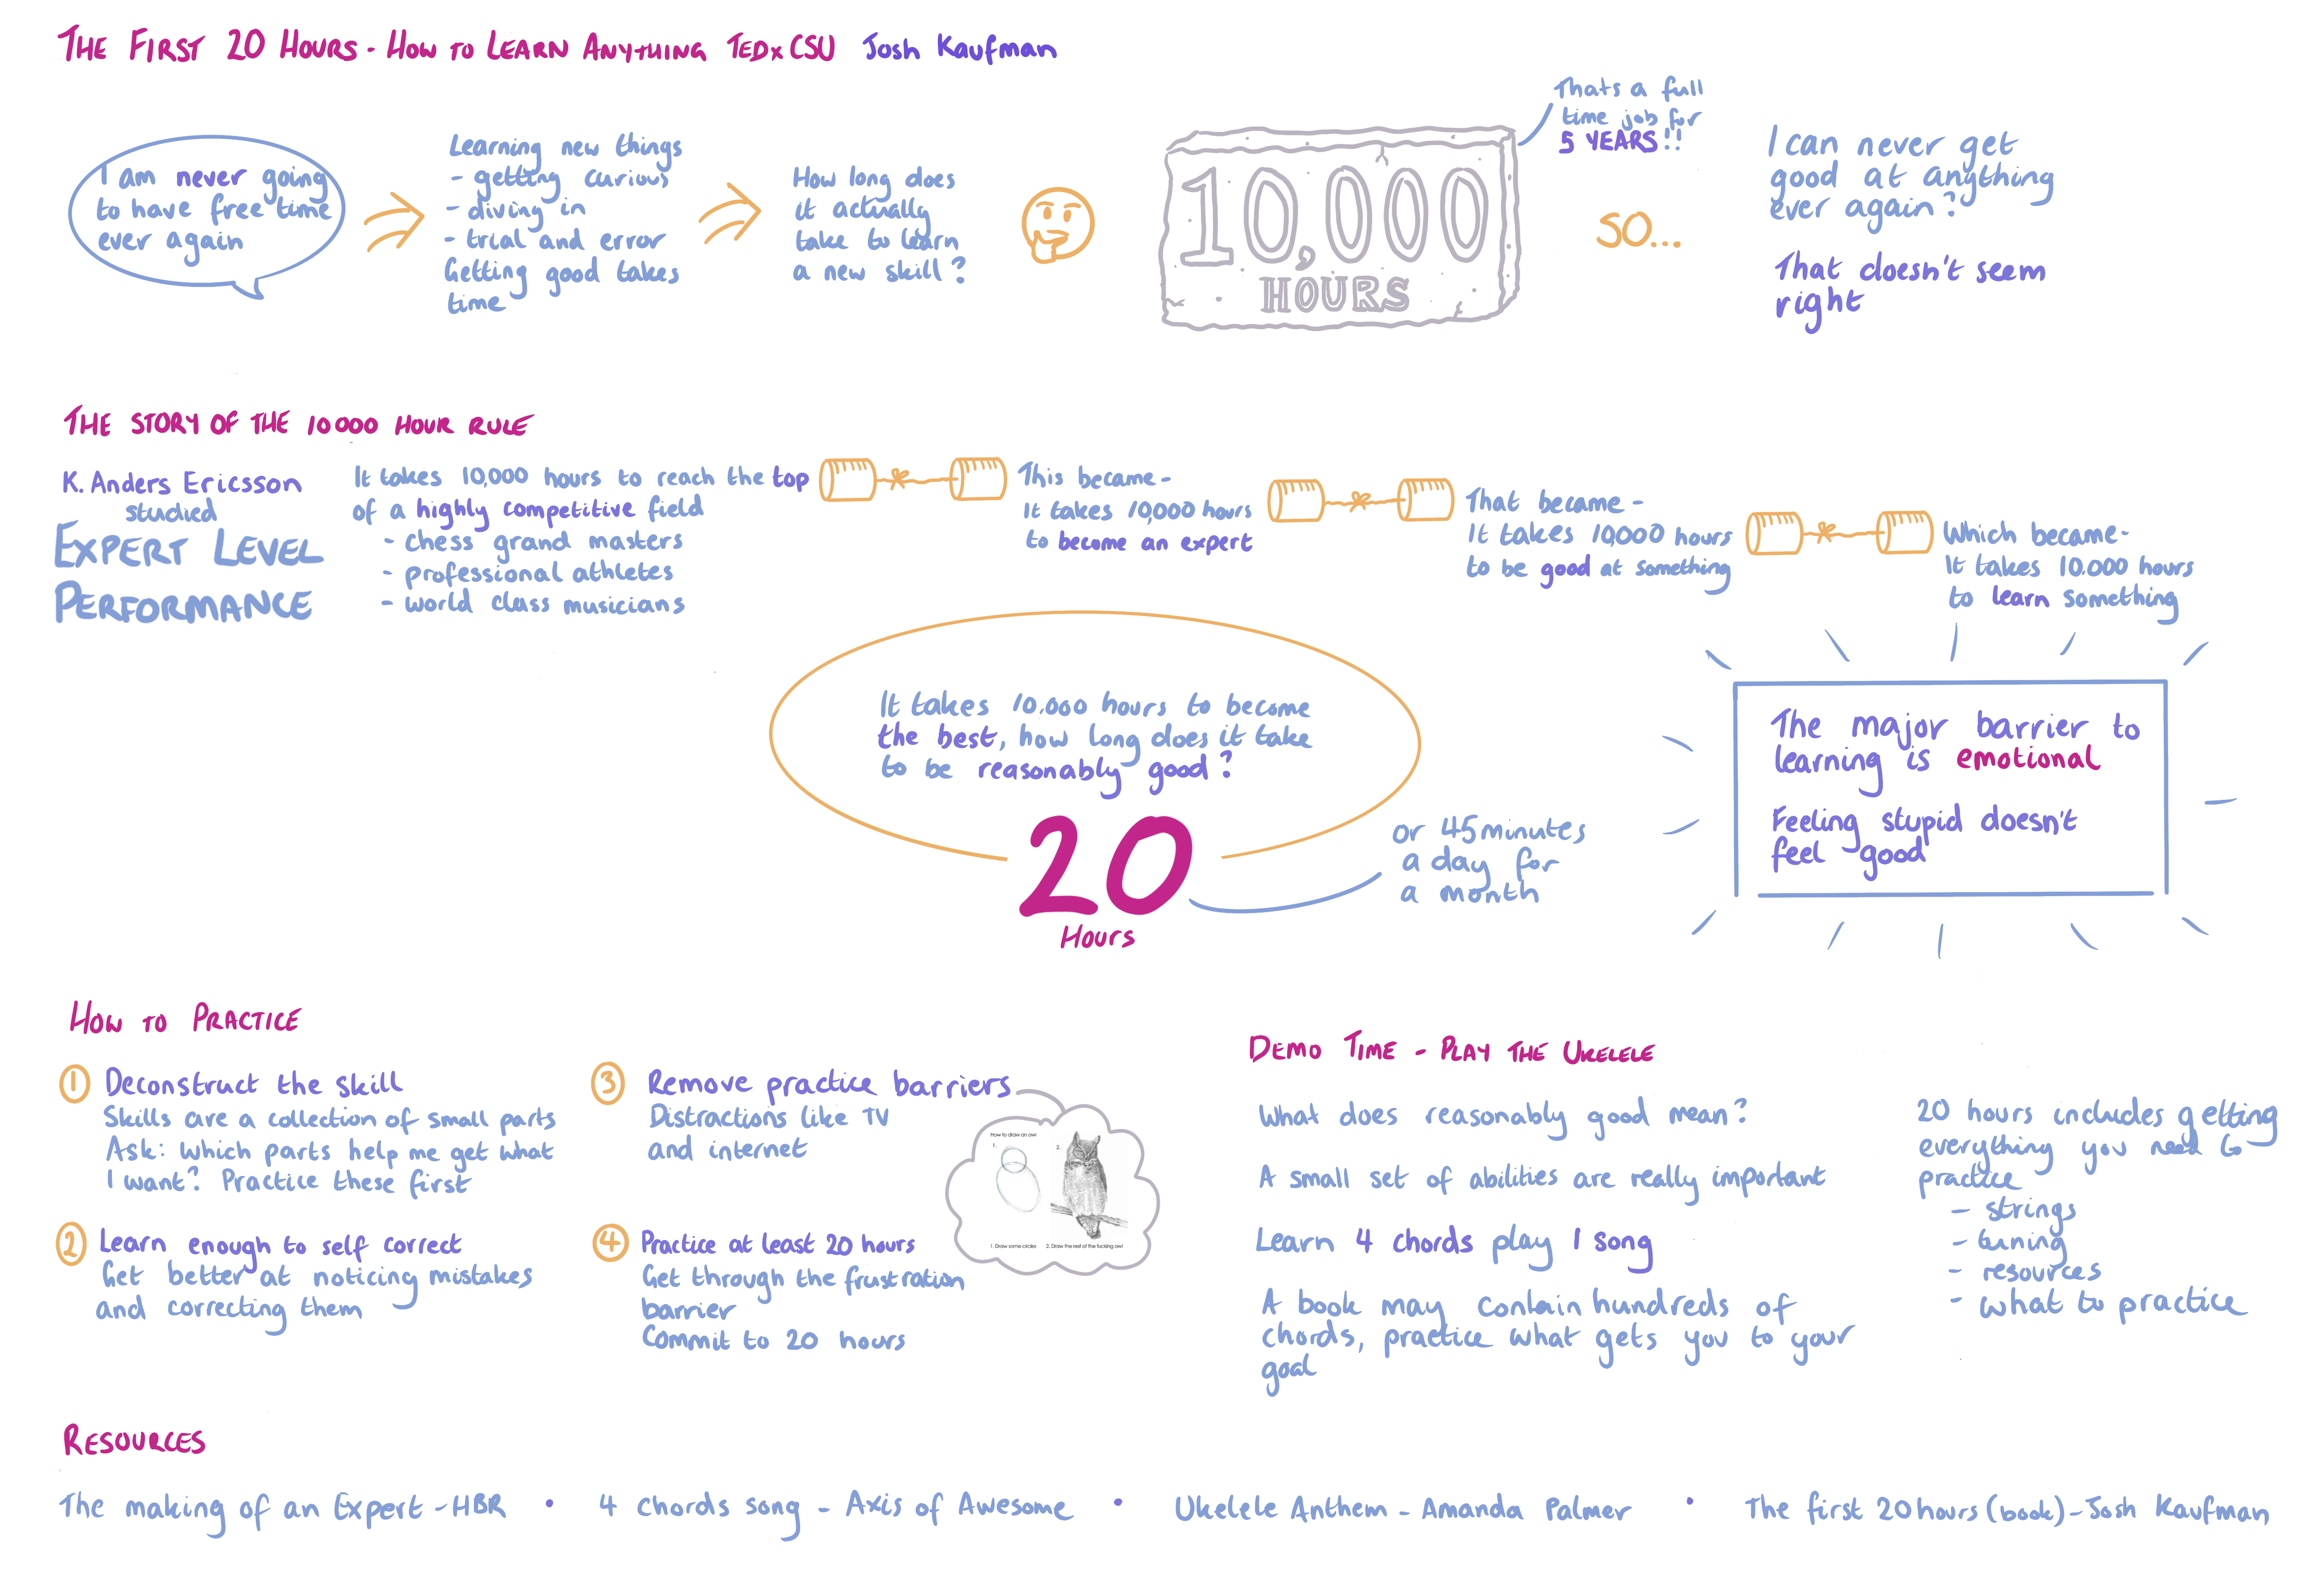 THE FIRST 20 HOURS - HOW TO LEARN ANYTHING TEDx CSU Josh Kaufman
I am never going
to have free time
ever again
Learning new things
- getting curious
- diving in
- trial and error
Getting good takes
time
How long does
it actually
take to learn
a new skill?
10,000
HOURS
Thats a full
time job for
5 YEARS!!
SO...
I can never get
good at anything
ever again?
That doesn't seem
right
THE STORY OF THE 10000 HOUR RULE
K. Anders Ericsson
studied
EXPERT LEVEL
PERFORMANCE
It takes 10,000 hours to reach the top
of a highly competitive field
- chess grand masters
- professional athletes
- world class musicians
This became-
it takes 10,000 hours
to become an expert
That became-
It takes 10,000 hours
to be good at something
Which became-
It takes 10.000 hours
to learn something
It takes 10.000 hours to become
the best, how long does it take
to be reasonably good?
20
HOURS
or 45 minutes
a day for
a month
The major barrier to
learning is emotional
Feeling stupid doesn't
feel good
HOW TO PRACTICE
1 Deconstruct the skill
Skills are a collection of small parts
Ask: Which parts help me get what
I want? Practice these first
2 Learn enough to self correct
Get better at noticing mistakes
and correcting them
3 Remove practice barriers
Distractions like TV
and internet
How to draw an owl
1.
2.
1. Draw some circles
2. Draw the rest of the fucking owl
4 Practice at least 20 hours
Get through the frustration
barrier
Commit to 20 hours
DEMO TIME - PLAY THE UKELELE
What does reasonably good mean?
A small set of abilities are really important
Learn 4 chords play 1 song
A book may contain hundreds of
chords, practice what gets you to your
goal
20 hours includes getting
everything you need to
practice
- strings
- tuning
- resources
- what to practice
RESOURCES
The making of an Expert - HBR • 4 Chords song - Axis of Awesome • Ukelele Anthem - Amanda Palmer • The first 20 hours (book) - Josh Kaufman